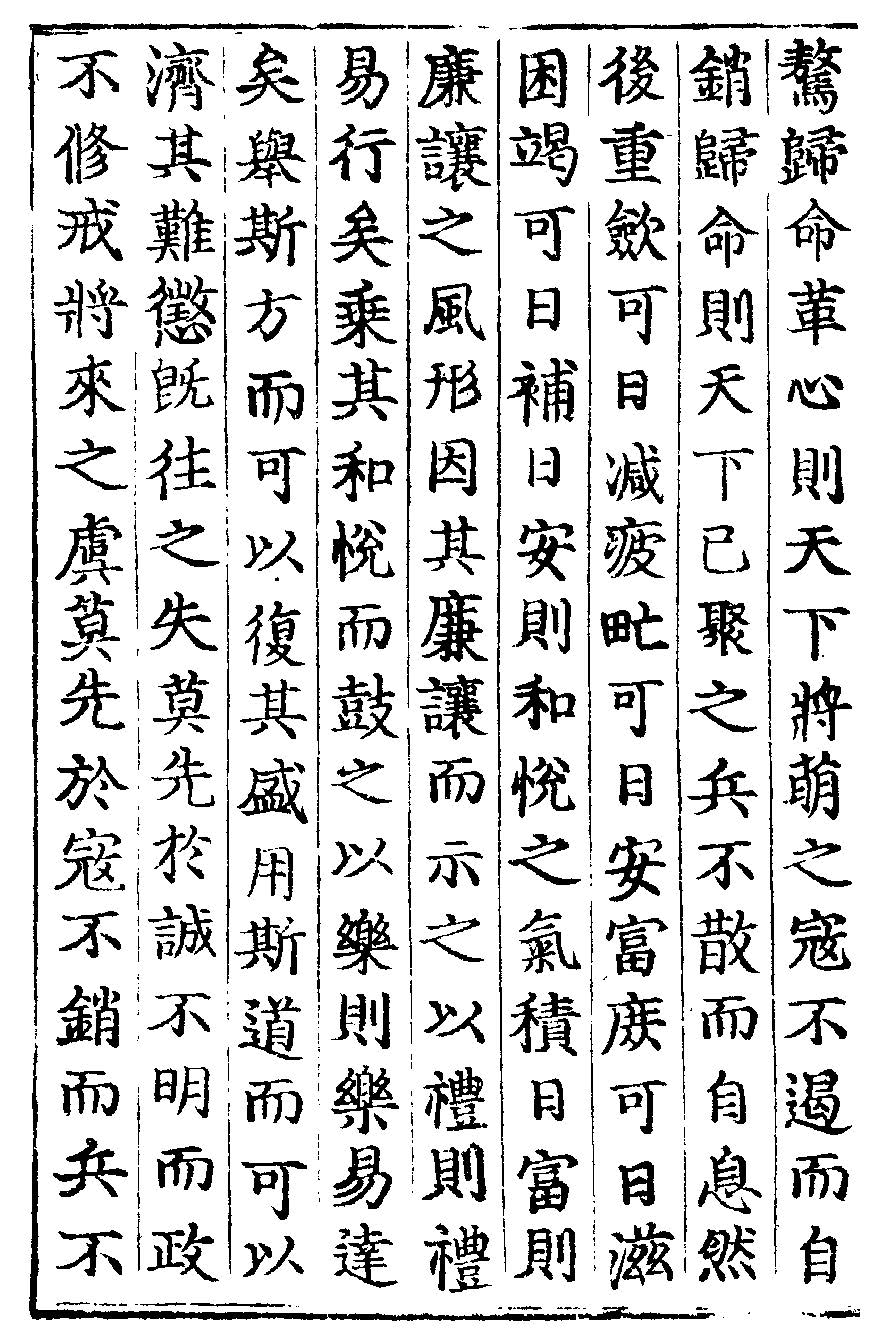 驁歸命革心則天下將萌之宼不遏而自
銷歸命則天下已聚之兵不散而自息然
後重斂可日减疲甿可日安富庻可日滋
困竭可日補日安則和悅之氣積日富則
廉讓之風形因其廉讓而示之以禮則禮
易行矣乗其和悅而鼓之以樂則樂易達
矣舉斯方而可以復其盛用斯道而可以
濟其難懲旣往之失莫先於誠不明而政
不修戒將來之虞莫先於宼不銷而兵不